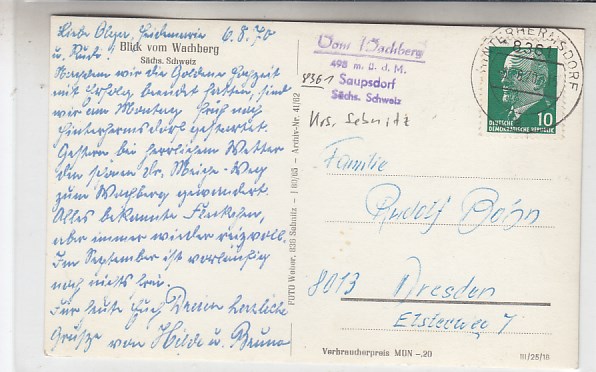 Liebe Olga, Heidemarie 6.8.70
u. Rudi!
Blick vom Wachberg
Sächs. Schweiz
Nachdem wir die Goldene Hochzeit
mit Erfolg beendet hatten, sind
wir am Montag früh nach
Hinterhermsdorf gestartet.
Gestern bei herrlichem Wetter
den schönen Dr. Weg
zum Wachberg gewandert.
Alles bekannte Fleckchen,
aber immer wieder reizvoll.
Im September ist vorläufig
noch nichts frei.
Für heute Euch Dreien herzliche
Grüße von Hilde u. Bruno
FOTO Weiser, 836 Sebnitz - I 80/65 - Archiv-Nr. 41/62
Vom Wachberg
498 m. ü. d. M.
8361 Saupsdorf
Sächs. Schweiz
Krs. Sebnitz
HINTERHERMSDORF
8361
10
DEUTSCHE
DEMOKRATISCHE REPUBLIK
Familie
Rudolf Böhn
8013 Dresden
Elsterweg 7
Verbraucherpreis MDN -,20
III/25/18